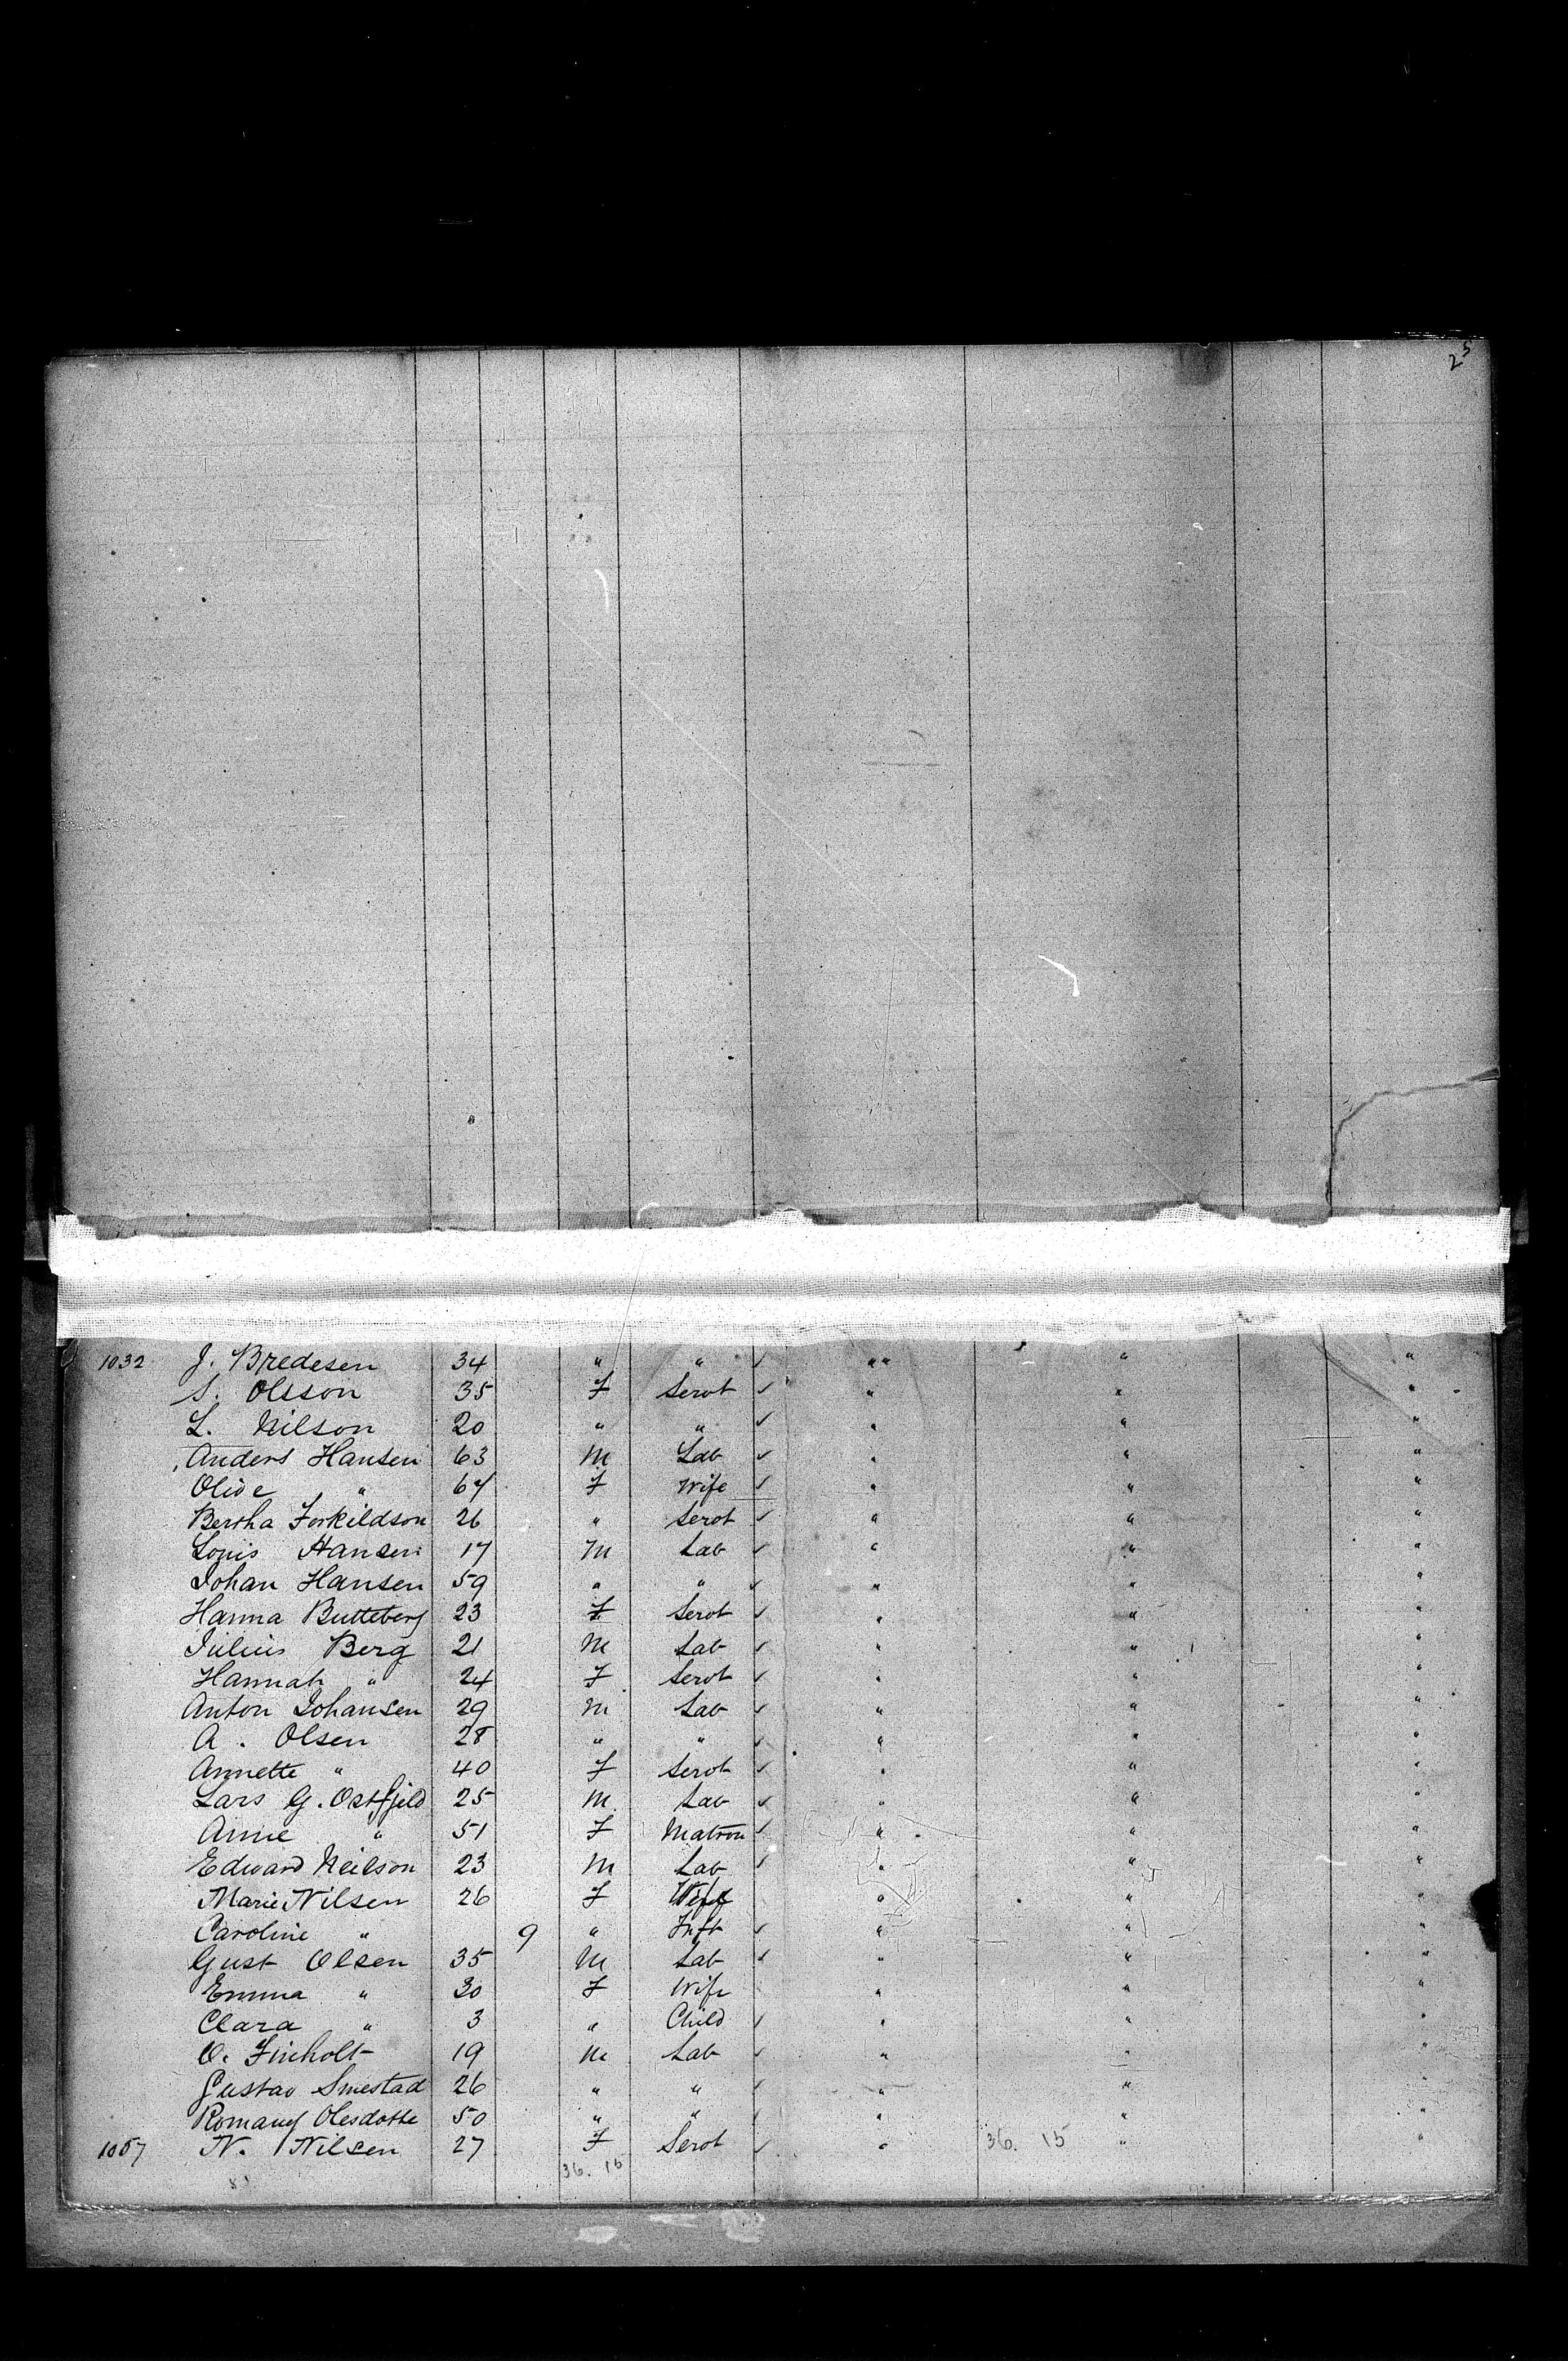 25
1032 J. Bredesen 34 " " ✓ " " " "
S. Olsson 35 F Servt ✓ " " "
L. Nilson 20 " " ✓ " " "
Anders Hansen 63 M Lab ✓ " " "
Olive " 67 F Wife ✓ " " "
Bertha Torkildson 26 " Servt ✓ " " "
Louis Hansen 17 M Lab ✓ " " "
Johan Hansen 59 " " ✓ " " "
Hanna Butteberg 23 F Servt ✓ " " "
Julius Berg 21 M Lab ✓ " " "
Hannah " 24 F Servt ✓ " " "
Anton Johansen 29 M Lab ✓ " " "
A. Olsen 28 " " ✓ " " "
Annette " 40 F Servt ✓ " " "
Lars G. Ostfjeld 25 M Lab ✓ " " "
Anne " 51 F Matron ✓ " " "
Edward Neilson 23 M Lab ✓ " " "
Marie Nilsen 26 F Wife " " "
Caroline " 9 " Inft ✓ " " "
Gust Olsen 35 M Lab ✓ " " "
Emma " 30 F Wife " " "
Clara " 3 " Child ✓ " " "
O. Finholt 19 M Lab ✓ " " "
Gustav Smestad 26 " " ✓ " " "
Olesdotte 50 " " ✓ " " "
1057 N. Nilsen 27 F Servt ✓ " 36. 15 " "
36. 15